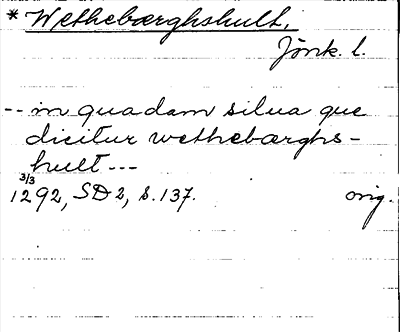 * Wethebærghshult,
Jönk. l.
-- in quadam silua que
dicitur wethebærghs-
hult ---
3/3
1292, SD 2, s. 137. orig.